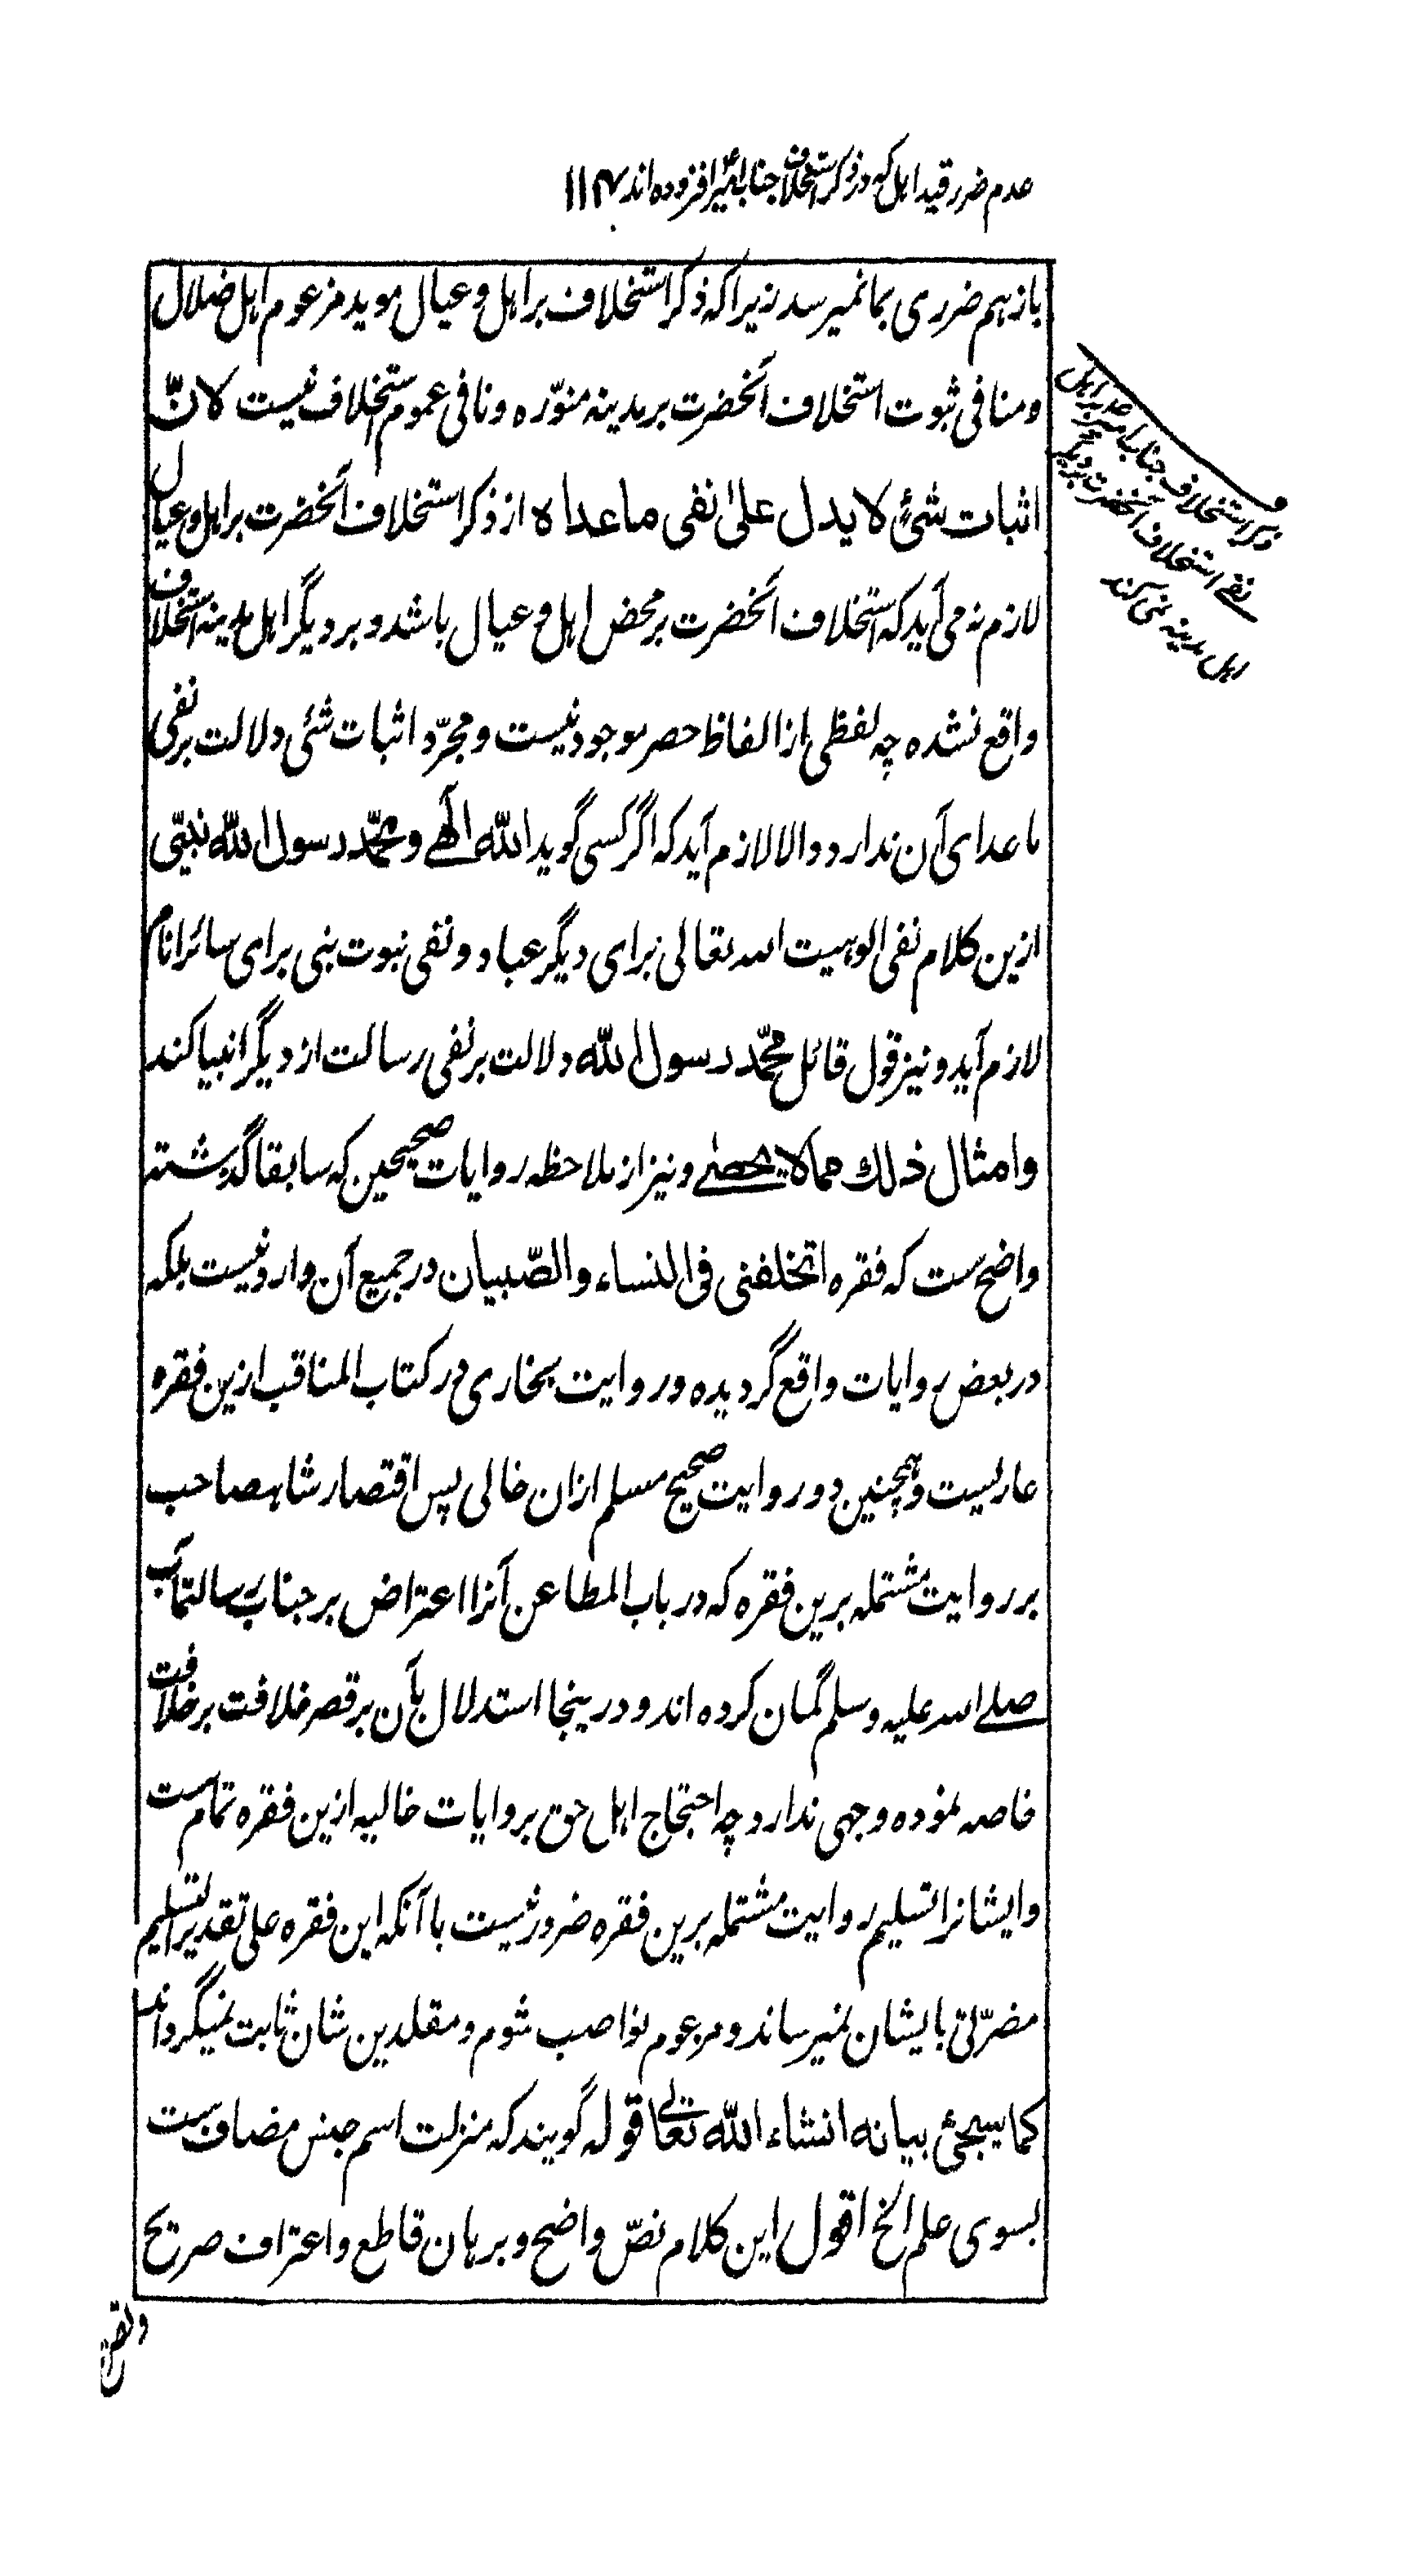 عدم ضرر قید اهل که در ذکر استخلاف جناب امیرؑ افزوده‌اند ۱۱۴۷
باز هم ضرری بما نمیرسد زیرا که ذکر استخلاف بر اهل و عیال موید مزعوم اهل ضلال
و منافی ثبوت استخلاف آنحضرت بر مدینه منوّره و نافی عموم استخلاف نیست لانّ
اثبات شیٔ لا یدل علیٰ نفی ماعداه از ذکر استخلاف آنحضرت بر اهل و عیال
لازم نه می‌آید که استخلاف آنحضرت بر محض اهل و عیال باشد و بر دیگر اهل مدینه استخلاف
واقع نشده چه لفظی از الفاظ حصر موجود نیست و مجرّد اثبات شئی دلالت بر نفی
ماعدای آن ندارد و الا لازم آید که اگر کسی گوید الله الٰهی و محمّد رسول الله نبیّی
ازین کلام نفی الوهیت الله تعالی برای دیگر عباد و نفی نبوت نبی برای سائر انام
لازم آید و نیز قول قائل محمّد رسول الله دلالت بر نفی رسالت از دیگر انبیا کند
و امثال ذلك مما لا یحصی و نیز از ملاحظه روایات صحیحین که سابقا گذشته
واضح ست که فقره اتخلفنی فی النساء والصّبیان در جمیع آن وارد نیست بلکه
در بعض روایات واقع گردیده و روایت بخاری در کتاب المناقب ازین فقره
عاریست و همچنین دو روایت صحیح مسلم ازان خالی پس اقتصار شاهصاحب
بر روایت مشتمله برین فقره که در باب المطاعن آنرا اعتراض بر جناب رسالتمآب
صلی الله علیه وسلم گمان کرده‌اند و درینجا استدلال بآن بر قصر خلافت بر خلافت
خاصه نموده وجهی ندارد چه احتجاج اهل حق بروایات خالیه ازین فقره تمام ست
و ایشانرا تسلیم روایت مشتمله برین فقره ضرور نیست با آنکه این فقره علی تقدیر التسلیم
مضرّتی بایشان نمیرساند و مزعوم نواصب شوم و مقلدین شان ثابت نمیگرداند
کما سیجیٔ بیانه انشاء الله تعالی قوله گویند که منزلت اسم جنس مضاف ست
بسوی علم الخ اقول این کلام نصّ واضح و برهان قاطع و اعتراف صریح
ذکر استخلاف جناب امیرؑ بر اهل
نفی استخلاف آنحضرت بر دیگر
اهل مدینه نمی کند